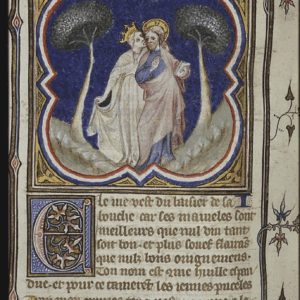 Ele me best du baisier de sa
bouche car ses mameles sont
meilleurs que nul vin tant
soit bon et plus souef flairās
que nulz bons oingnemens
Ton nom est cme huille espan
due et pour ce tameret les iennes pucelles